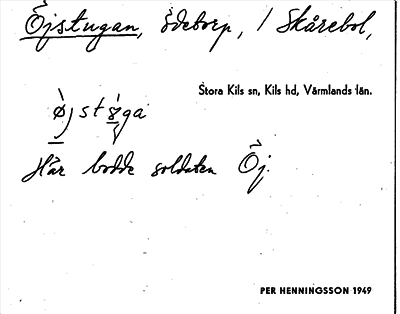 Öjstugan, ödetorp, / Skårebol,
Stora Kils sn, Kils hd, Värmlands län.
Här bodde soldaten Öj.
PER HENNINGSSON 1949